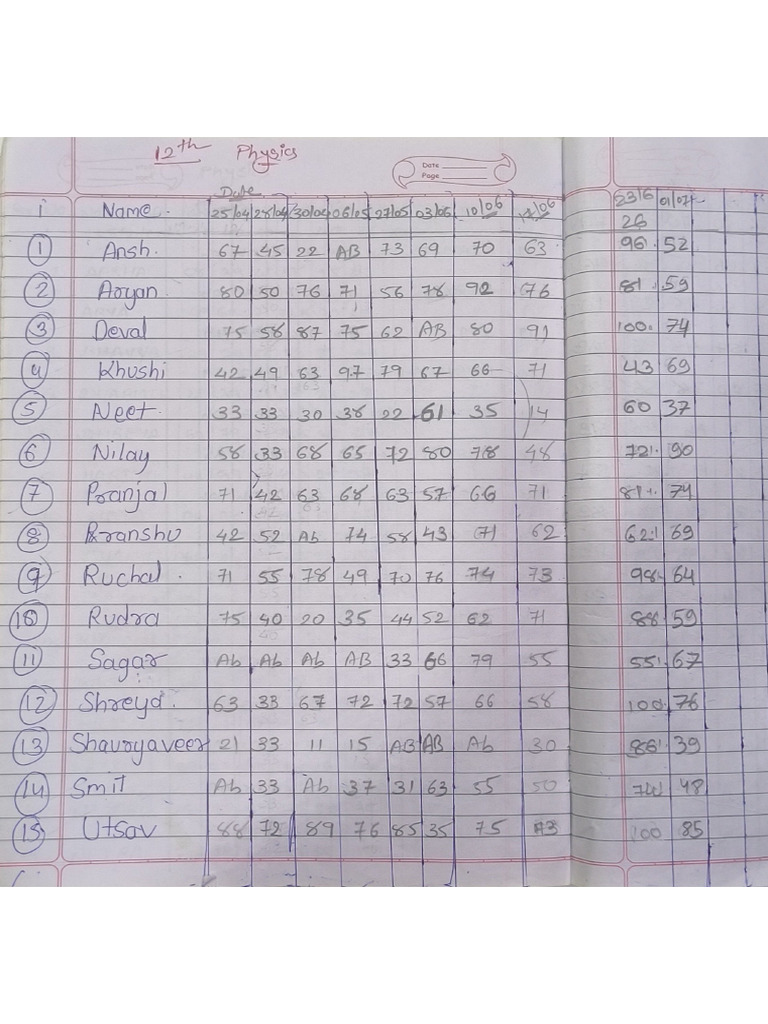 12th Physics
Date
Page
Date
i Name. 25/04 28/04 30/04 06/05 27/05 03/06 10/06 17/06 23/6 01/07
26
1 Ansh. 67 45 22 AB 73 69 70 63 96. 52
2 Aryan 80 50 76 71 56 78 92 76 81. 59
3 Deval 75 58 87 75 62 AB 80 91 100. 74
4 Khushi 42 49 63 97 79 67 66 71 43 69
5 Neet. 33 33 30 38 22 61 35 14 60 37
6 Nilay 58 33 68 65 72 80 78 48 72 90
7 Pranjal 71 42 63 68 63 57 66 71 81 74
8 Pranshu 42 52 Ab 74 58 43 71 62 62 69
9 Ruchal. 71 55 78 49 70 76 74 73 98. 64
10 Rudra 75 40 20 35 44 52 62 71 88 59
11 Sagar Ab Ab Ab AB 33 66 79 55 55 67
12 Shreyd. 63 33 67 72 72 57 66 58 100. 76
13 Shauryaveer 21 33 11 15 AB AB Ab 30 86 39
14 Smit Ab 33 Ab 37 31 63 55 50 74 48
15 Utsav 88 72 89 76 85 35 75 73 100 85